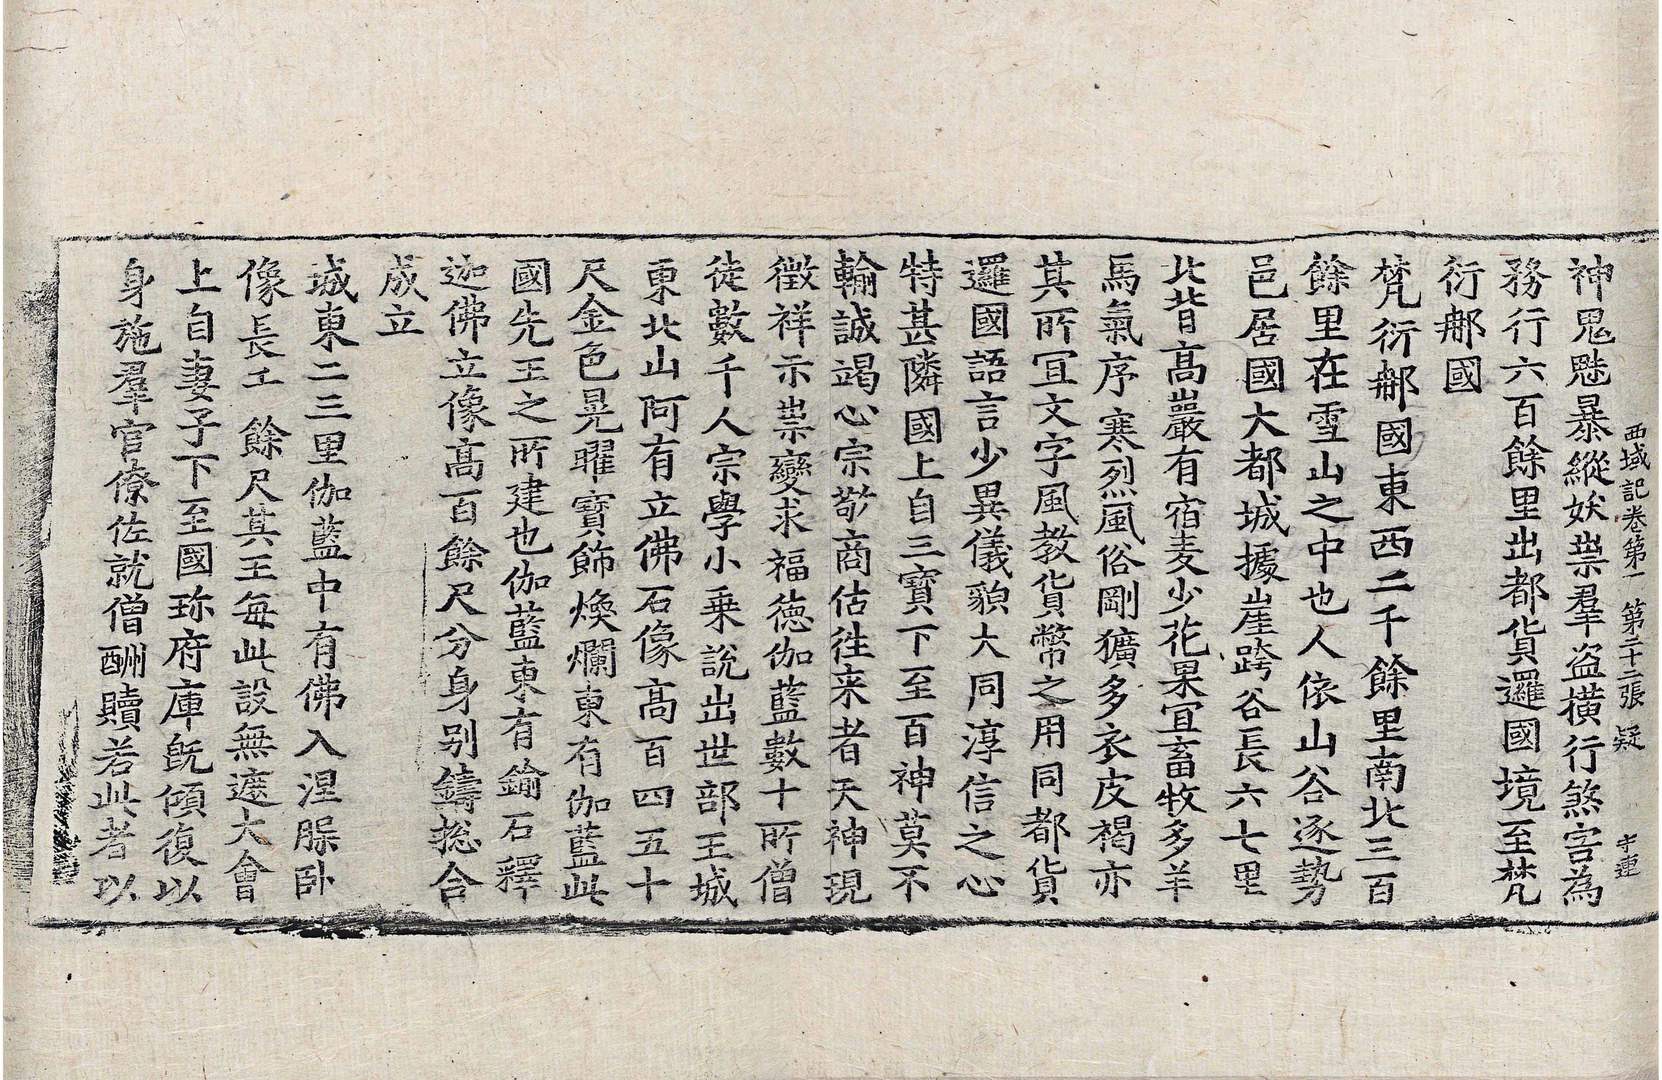 西域記卷第一 第二十二張 疑 李連
神鬼魅暴縱妖祟羣盜橫行煞害為
務行六百餘里出都貨邏國境至梵
衍那國
梵衍那國東西二千餘里南北三百
餘里在雪山之中也人依山谷逐勢
邑居國大都城據崖跨谷長六七里
北背高巖有宿麦少花果冝畜牧多羊
馬氣序寒烈風俗剛獷多衣皮褐亦
其所冝文字風教貨幣之用同都貨
邏國語言少異儀貌大同淳信之心
特甚隣國上自三寶下至百神莫不
輸誠竭心宗敬商估往来者天神現
徵祥示祟變求福德伽藍數十所僧
徒數千人宗學小乗說出世部王城
東北山阿有立佛石像高百四五十
尺金色晃曜寶飾煥爛東有伽藍此
國先王之所建也伽藍東有鍮石釋
迦佛立像高百餘尺分身別鑄揔合
成立
城東二三里伽藍中有佛入涅槃卧
像長千餘尺其王每此設無遮大會
上自妻子下至國珎府庫旣傾復以
身施羣官僚佐就僧酬贖若此者以